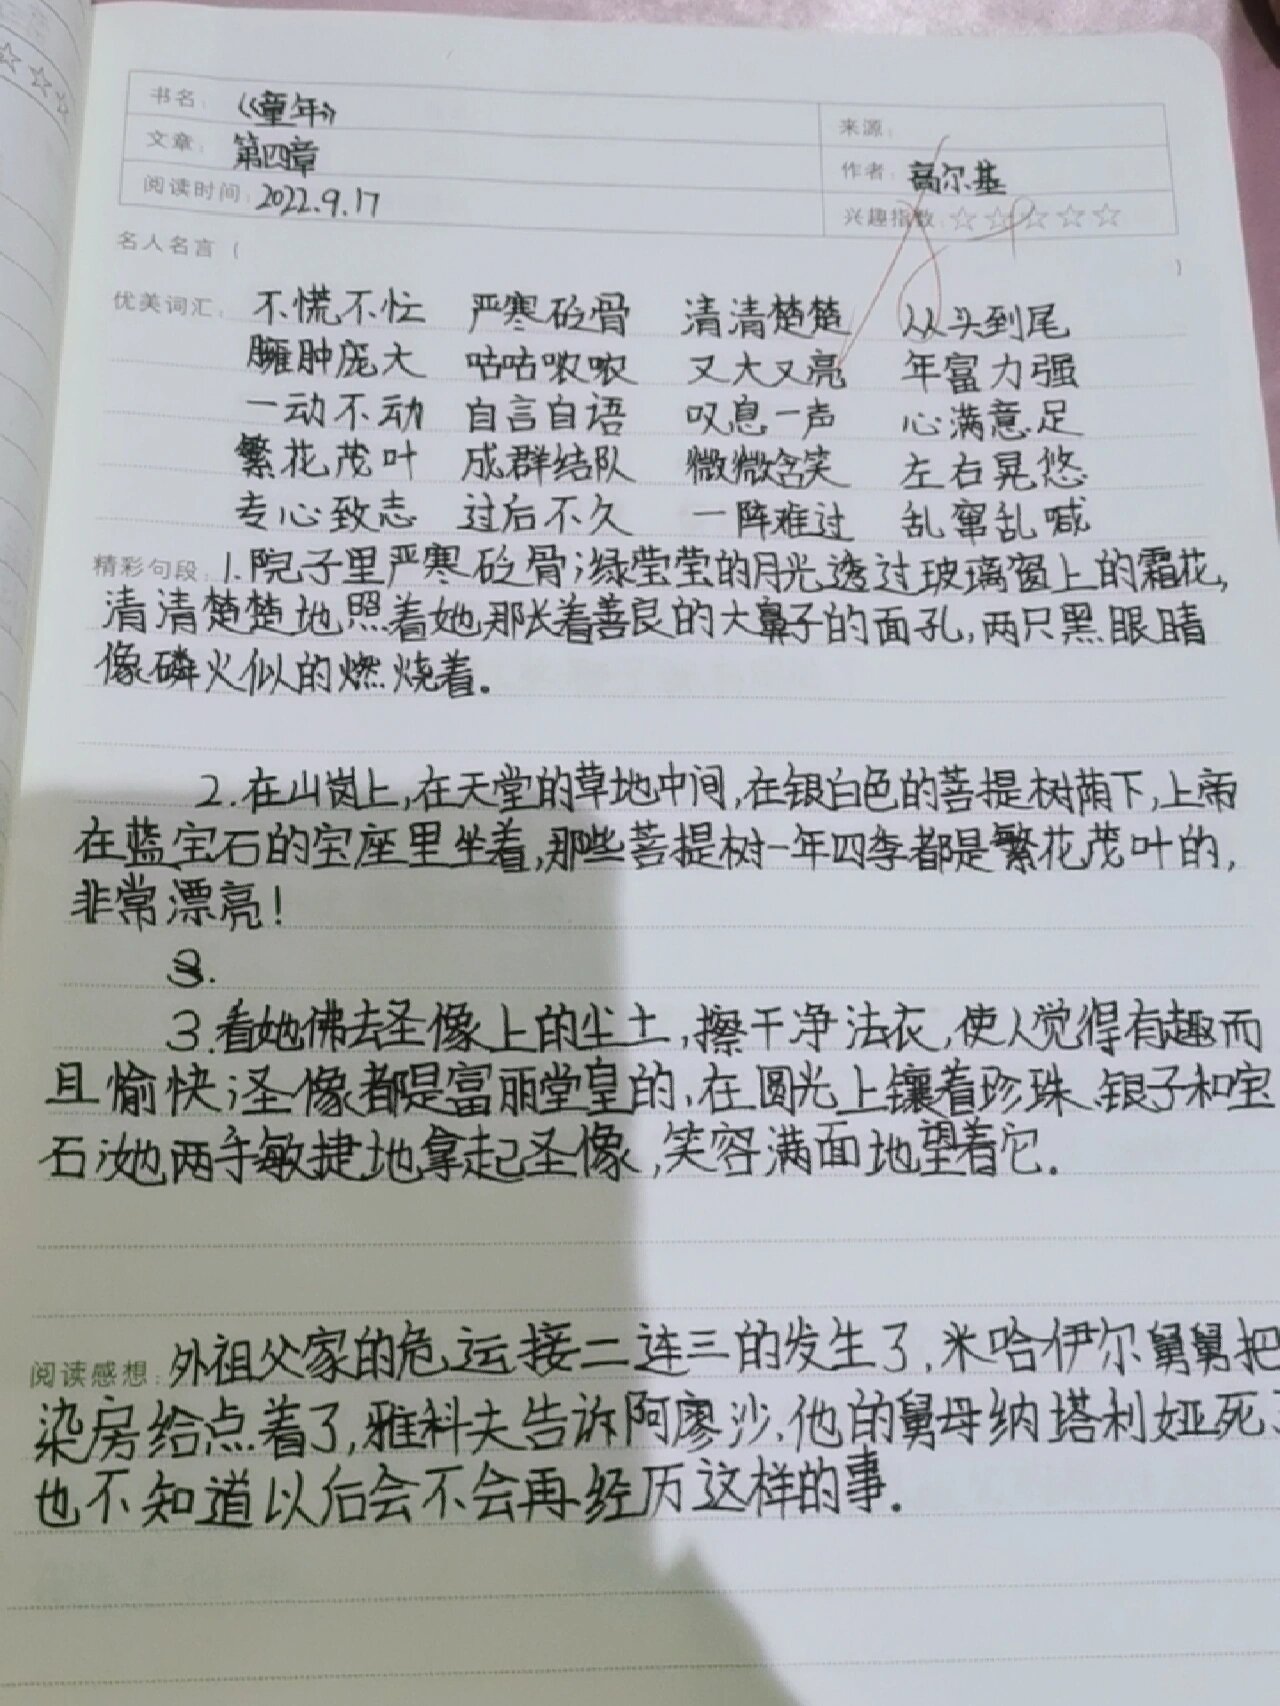 书名：《童年》
来源：
文章：第四章
作者：高尔基
阅读时间：2022.9.17
兴趣指数：☆☆☆☆☆
名人名言（ ）
优美词汇：不慌不忙 严寒砭骨 清清楚楚 从头到尾
臃肿庞大 咕咕哝哝 又大又亮 年富力强
一动不动 自言自语 叹息一声 心满意足
繁花茂叶 成群结队 微微含笑 左右晃悠
专心致志 过后不久 一阵难过 乱窜乱喊
精彩句段：1.院子里严寒砭骨；绿莹莹的月光透过玻璃窗上的霜花，
清清楚楚地照着她那长着善良的大鼻子的面孔，两只黑眼睛
像磷火似的燃烧着。
2.在山岗上，在天堂的草地中间，在银白色的菩提树荫下，上帝
在蓝宝石的宝座里坐着，那些菩提树一年四季都是繁花茂叶的，
非常漂亮！
3.
3.看她佛去圣像上的尘土，擦干净法衣，使人觉得有趣而
且愉快；圣像都是富丽堂皇的，在圆光上镶着珍珠、银子和宝
石；她两手敏捷地拿起圣像，笑容满面地望着它。
阅读感想：外祖父家的危运接二连三的发生了，米哈伊尔舅舅把
染房给点着了，雅科夫告诉阿廖沙，他的舅母纳塔利娅死
也不知道以后会不会再经历这样的事。